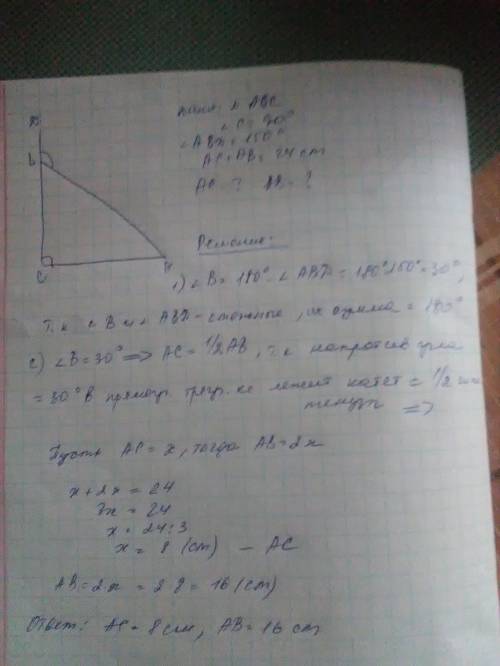 Дано: △ ABC
∠C = 90°
∠ABD = 150°
AC+AB = 24 cm
AC - ? AB - ?
D
B
C
A
Решение:
1) ∠B = 180° - ∠ABD = 180° - 150° = 30°,
т.к ∠B и ∠ABD - смежные, их сумма = 180°
2) ∠B = 30° => AC = 1/2 AB, т.к напротив угла
= 30° в прямоуг. треуг-ке лежит катет = 1/2
=>
Пусть AC = x, тогда AB = 2x
x + 2x = 24
3x = 24
x = 24 : 3
x = 8 (cm) — AC
AB = 2x = 2·8 = 16 (cm)
Ответ: AC = 8 см, AB = 16 cm